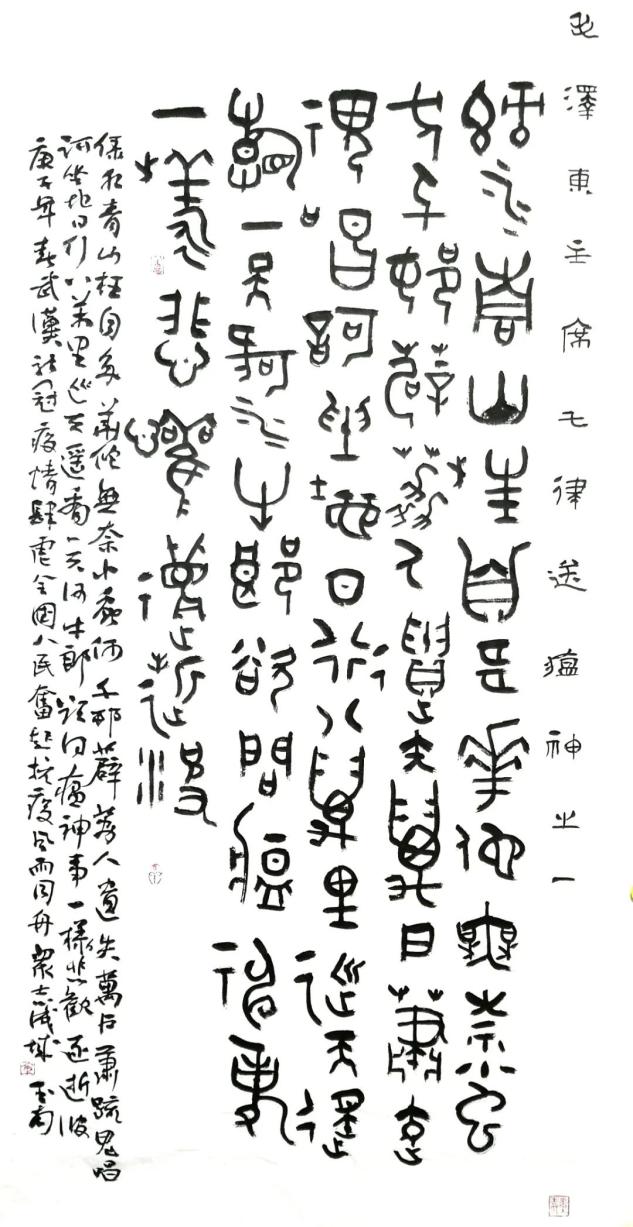 毛澤東主席七律送瘟神之一
綠水青山枉自多華佗無奈小蟲
何千邨薜荔人遺矢萬戶蕭疏
鬼唱謌坐地日行八萬里巡天遙
看一天河牛郎欲問瘟神事
一樣悲歡逐逝波
綠水青山枉自多華佗無奈小蟲何千邨薜荔人遺失萬戶蕭疏鬼唱
謌坐地日行八萬里巡天遙看一天河牛郎欲問瘟神事一樣悲歡逐逝波
庚子年春武漢新冠疫情肆虐全國人民奮起抗疫風雨同舟衆志成城